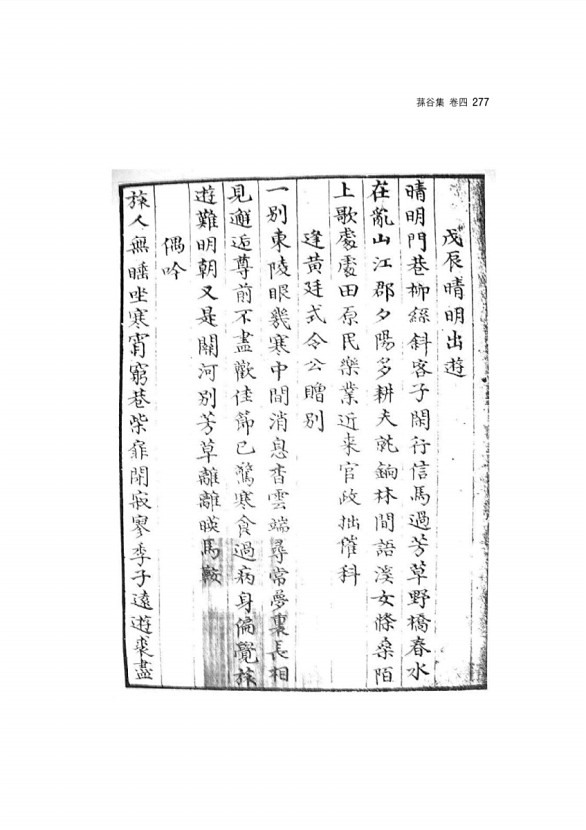 蓀谷集 卷四 277
戊辰晴明出遊
晴明門巷柳絲斜客子閑行信馬過芳草野橋春水
在亂山江郡夕陽多耕夫荷鍤林間語溪女條桑陌
上歌處處田原民樂業近来官政拙催科
逢黃廷式令公贈別
一別東陵眼幾寒中間消息杳雲端尋常夢裏長相
見邂逅尊前不盡歡佳節已驚寒食過病身偏覺旅
遊難明朝又是關河別芳草離離暎馬鞍
偶吟
旅人無睡坐寒宵窮巷柴扉閉寂寥季子遠遊裘盡